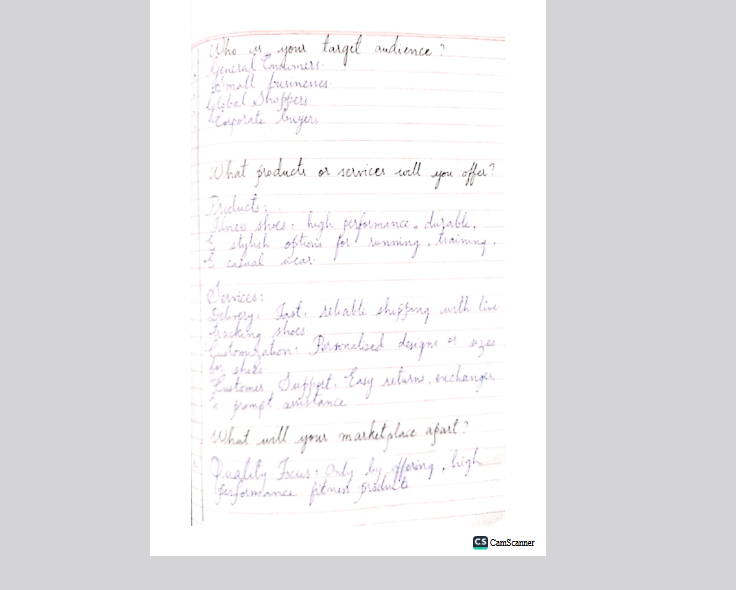 Who is your target audience?
General Consumers.
Small businesses.
Global Shoppers
Corporate buyers
What products or services will you offer?
Products:
Fitness shoes: high performance, durable,
& stylish options for running, training,
& casual wear.
Services:
Delivery: Fast, reliable shipping with live
tracking shoes
Customization: Personalized designs or sizes
for shoes
Customer Support: Easy returns, exchanges
& prompt assistance
What will your marketplace apart?
Quality Focus: Only by offering, high
performance fitness products
CS CamScanner